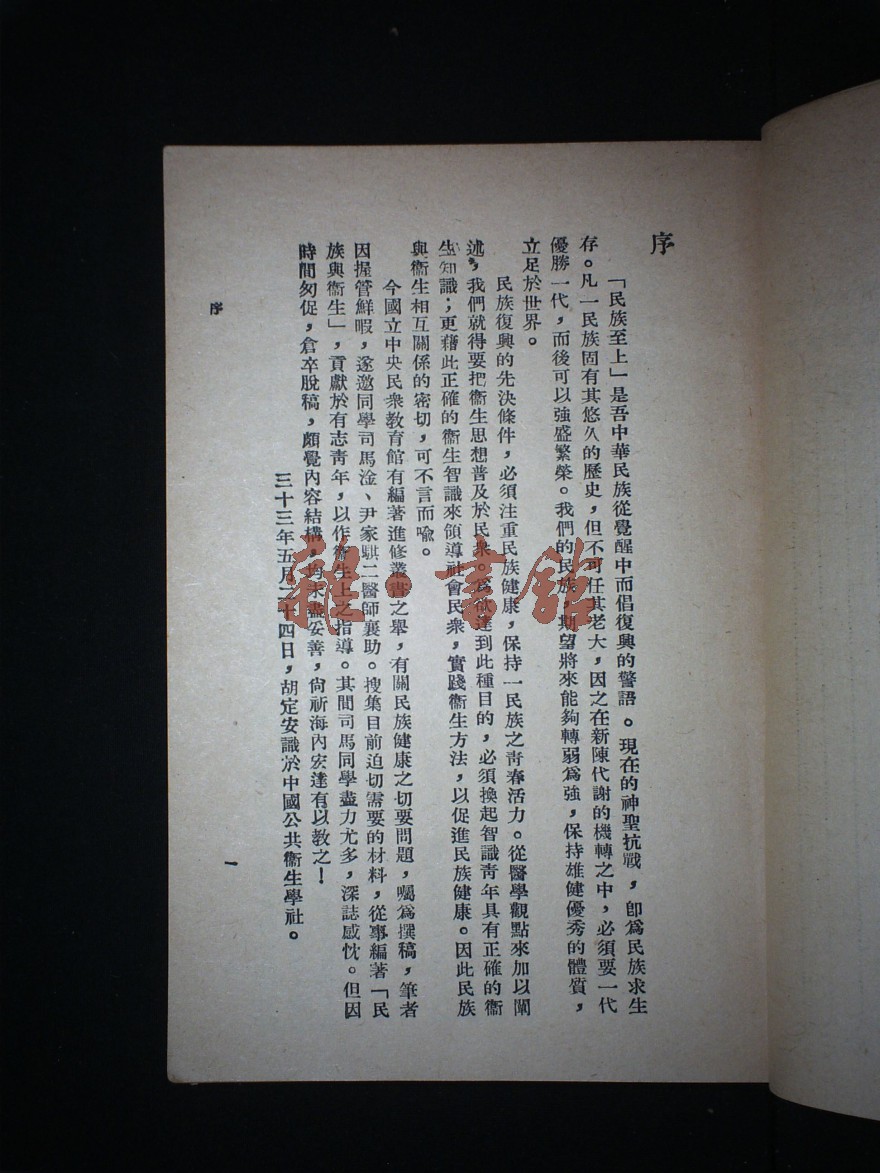 序
「民族至上」是吾中華民族從覺醒中而倡復興的警語。現在的神聖抗戰，卽爲民族求生
存。凡一民族固有其悠久的歷史，但不可任其老大，因之在新陳代謝的機轉之中，必須要一代
優勝一代，而後可以強盛繁榮。我們的民族，期望將來能夠轉弱爲強，保持雄健優秀的體質，
立足於世界。
民族復興的先決條件，必須注重民族健康，保持一民族之靑春活力。從醫學觀點來加以闡
述，我們就得要把衞生思想普及於民衆。爲欲達到此種目的，必須換起智識靑年具有正確的衞
生知識；更藉此正確的衞生智識來領導社會民衆，實踐衞生方法，以促進民族健康。因此民族
與衞生相互關係的密切，可不言而喩。
今國立中央民衆敎育館有編著進修叢書之舉，有關民族健康之切要問題，囑爲撰稿，筆者
因握管鮮暇，遂邀同學司馬淦、尹家騏二醫師襄助。搜集目前迫切需要的材料，從事編著「民
族與衞生」，貢獻於有志靑年，以作衞生上之指導。其間司馬同學盡力尤多，深誌感忱。但因
時間匆促，倉卒脫稿，頗覺內容結構，均未盡妥善，尙祈海內宏達有以敎之！
三十三年五月二十四日，胡定安識於中國公共衞生學社。
序
一
雜·書館